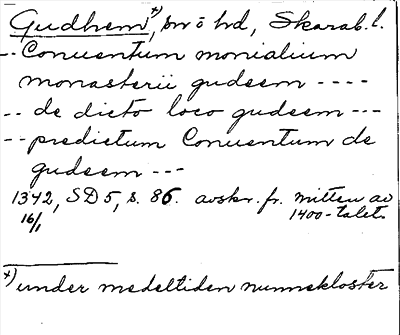 Gudhem *), sn o hd, Skarab. l.
-- Conuentum monialium
monasterii gudeem ----
-- de dicto loco gudeem ---
-- predictum Conuentum de
gudeem ---
1342, SD 5, s. 86. avskr. fr. mitten av
16/1 1400-talet.
*) under medeltiden nunnekloster